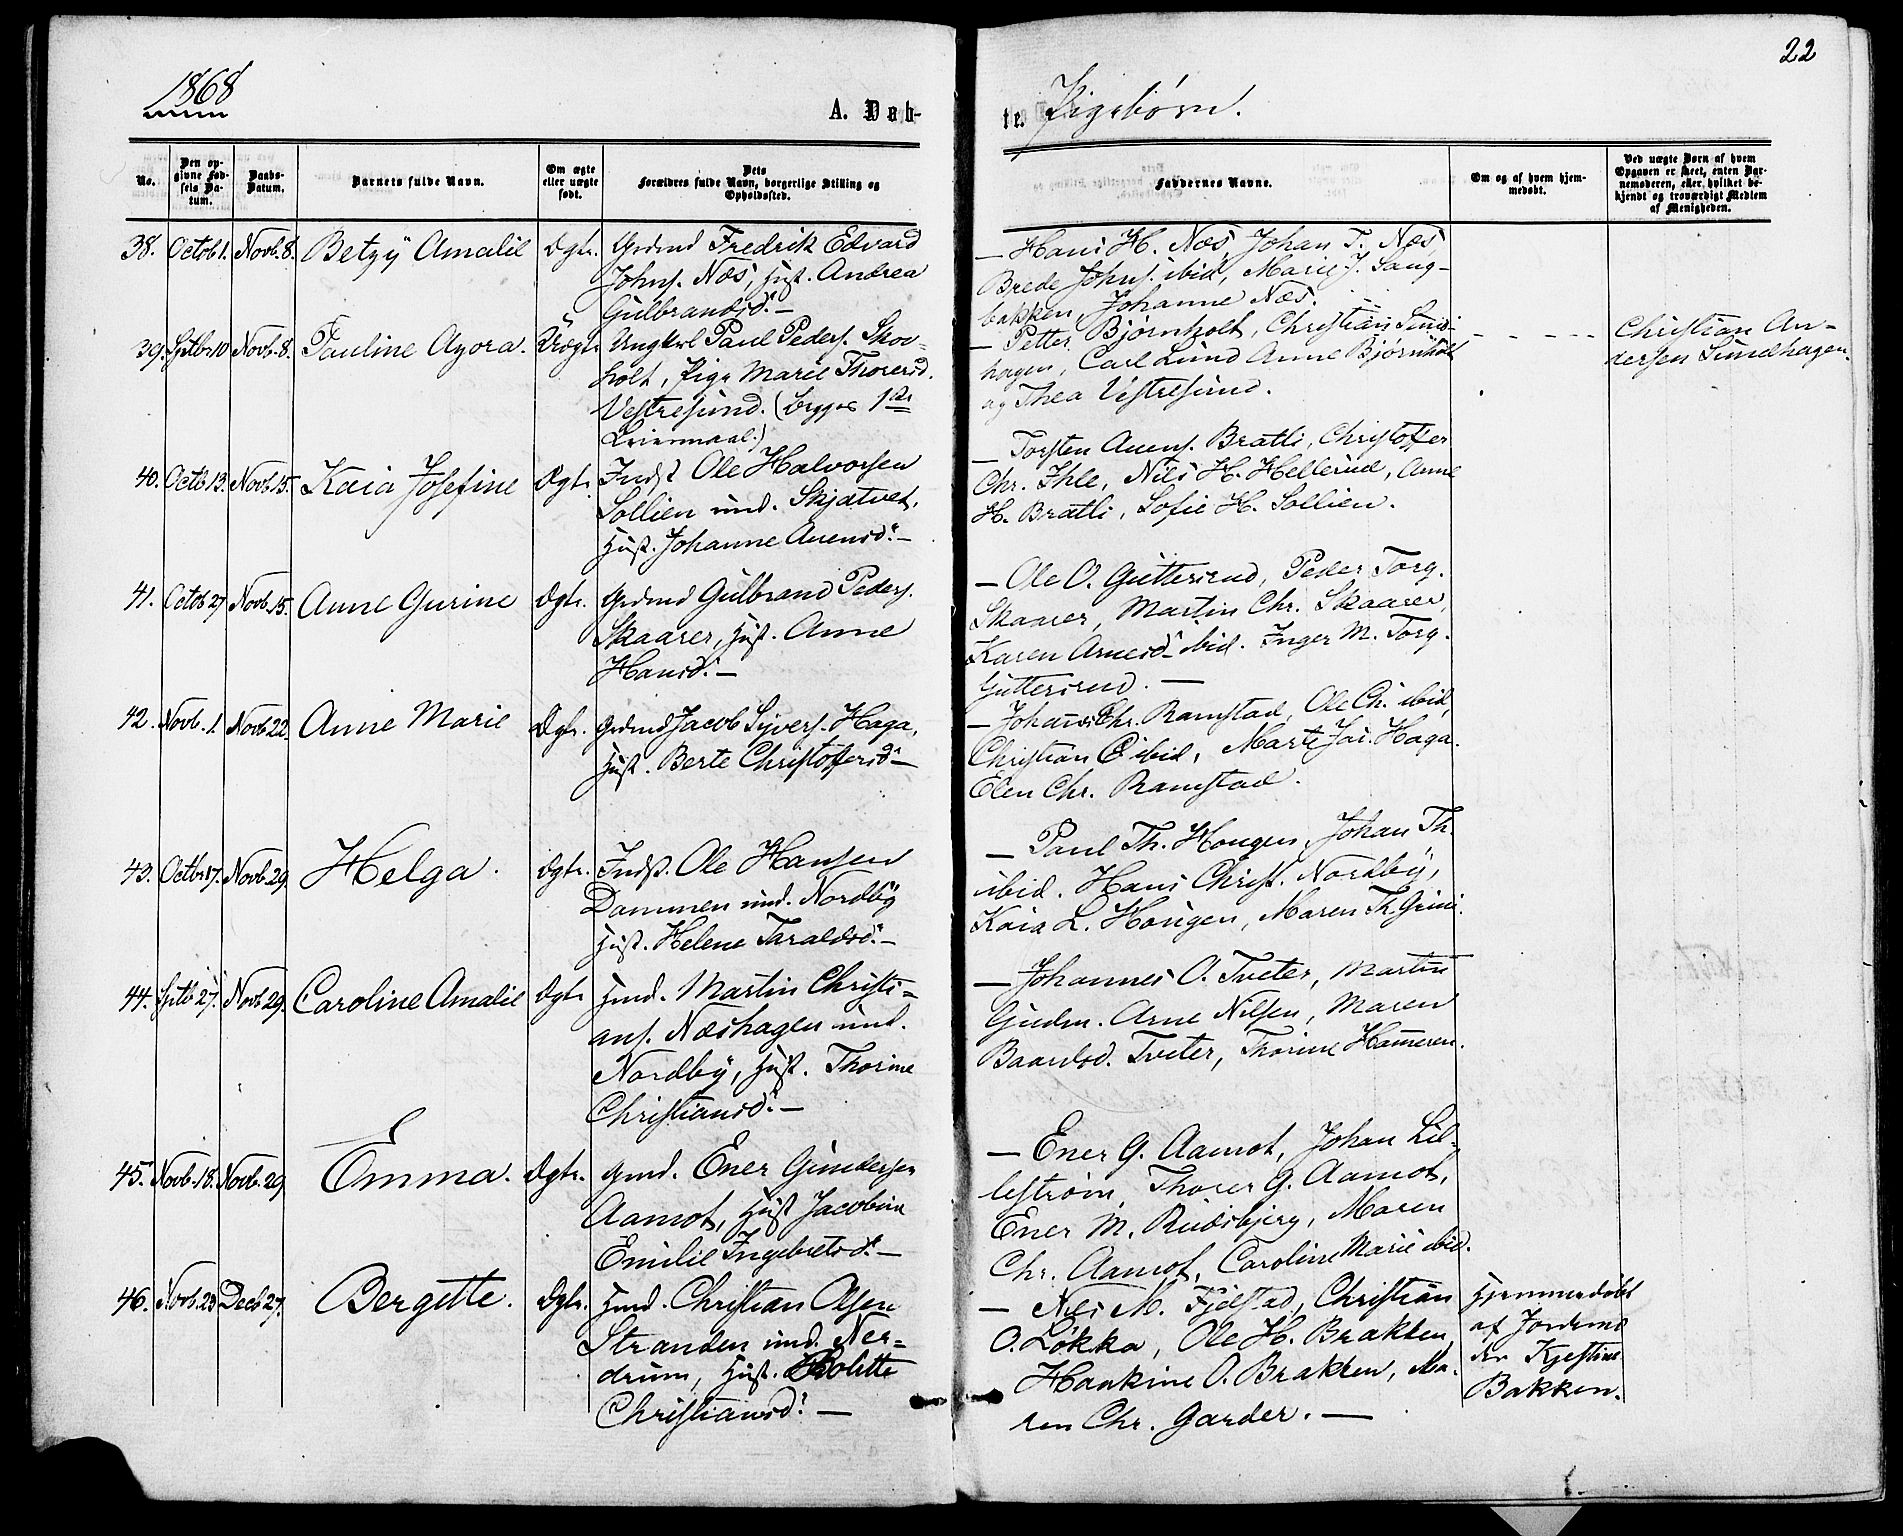 22
1868
A. Døb-
te. Pigebørn.
No.
Den op-
givne Fød-
sels Da-
tum.
Daabs-
Datum.
Barnets fulde Navn.
Om ægte
eller uægte
født.
Dets
Forældres fulde Navn, borgerlige Stilling og
Opholdssted.
Faddernes Navne.
Om og af hvem hjem-
medøbt.
Ved uægte Børn af hvem
Opgaven er skeet, enten Bar-
nemoderen, eller hvilket be-
kjendt og troværdigt Medlem
af Menigheden.
38. Octob 1. Novb. 8. Betzÿ Amalie Dgtr. Grdmd Fredrik Edvard
Johns. Næs, Hust. Andrea
Gulbrandsd. —
— Hans H. Næs, Johan T. Næs,
Brede Johns. ibid, Marie J. Lang-
bakken, Johanne Næs.
39. Sptbr 10 Novb. 8. Pauline Agora. Uægte Ungkrl Paul Peders. Skov-
holt, Pige Marie Thoresd.
Vestresund. (begges 1ste
Leiermaal.)
— Petter Bjørnholt, Christian Sund-
hagen, Carl Lund Anne Bjørnholt
og Thea Vestresund.
Christian An-
dersen Sundhagen.
40. Octb 13. Novb 15. Kaia Josefine Dgtr. Indst Ole Halvorsen
Sollien und. Skjatvet,
Hust. Johanne Auensd. —
— Torsten Auens. Bratli, Christoffer
Chr. Ihle, Nils H. Hellerud, Anne
H. Bratli, Sofie H. Sollien.
41. Octob 27 Novb 15. Anne Gurine Dgtr. Grdmd Gulbrand Peders.
Skaarer, Hust. Anne
Hansd. —
— Ole O. Guttersrud, Peder Torg.
Skaarer, Martin Chr. Skaarer,
Karen Arnesd. ibid. Inger M. Torg.
Guttersrud. —
42. Novb. 1. Novb 22. Anne Marie Dgtr. Grdmd Jacob Syvers. Haga,
Hust. Berte Christoffersd. —
— Johan Chr. Ramstad, Ole Chr. ibid,
Christian C ibid, Marte Jac. Haga.
Elen Chr. Ramstad.
43. Octbr 17. Novb 29. Helga. Dgtr. Indst. Ole Hansen
Dammen und. Nordbÿ
Hust. Helene Taraldsd. —
— Paul Th. Hougen, Johan Th.
ibid. Hans Christ. Nordbÿ,
Kaia L. Hougen, Maren Th. Grini.
44. Sptb 27. Novb 29. Caroline Amalie Dgtr Hmd. Martin Christi-
ans. Næshagen und.
Nordbÿ, Hust. Thorine
Christiansd. —
— Johannes O. Tveter, Martin
Gudm. Arne Nilsen, Maren
Baardsd. Tveter, Thorine Hameren.
45. Novb. 18. Novb. 29 Emma. Dgtr. Grmd. Ener Gundersen
Aamot, Hust Jacobine
Emilie Ingebretsd. —
— Ener G. Aamot, Johan Lil-
lestrøm, Thorer G. Aamot,
Ener M. Rudsbjerg, Maren
Chr. Aamot, Caroline Marie ibid.
46. Novb. 23 Decb 27. Bergette. Dgtr. Hmd. Christian Olsen
Stranden und. Ner-
drum, Hust. Bolette
Christiansd. —
— Nils M. Fjelstad, Christian
O. Løkka, Ole H. Brakken,
Haakine O. Brakken, Ma-
ren Chr. Garder. —
Hjemmedøbt
af Jordemo
der Kjestine
Bakken.